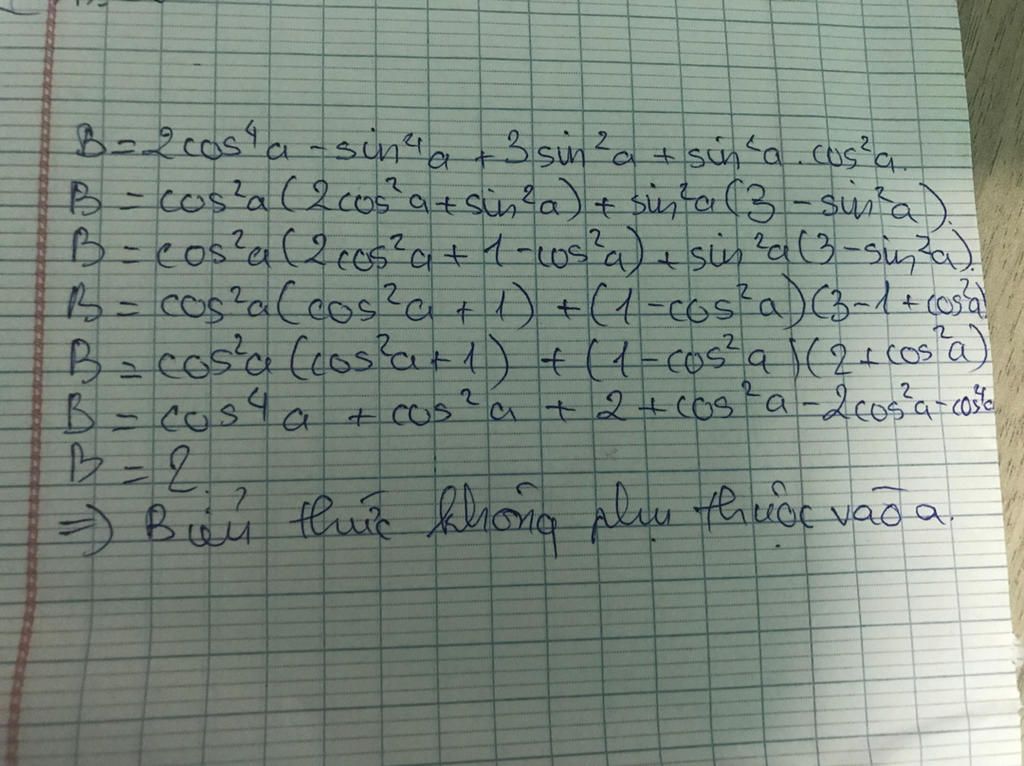 B = 2cos⁴a - sin⁴a + 3sin²a + sin²a . cos²a.
B = cos²a (2cos²a + sin²a) + sin²a (3 - sin²a).
B = cos²a (2cos²a + 1 - cos²a) + sin²a (3 - sin²a).
B = cos²a (cos²a + 1) + (1 - cos²a)(3 - 1 + cos²a)
B = cos²a (cos²a + 1) + (1 - cos²a)(2 + cos²a)
B = cos⁴a + cos²a + 2 + cos²a - 2cos²a - cos⁴a
B = 2.
=> Biểu thức không phụ thuộc vào a.